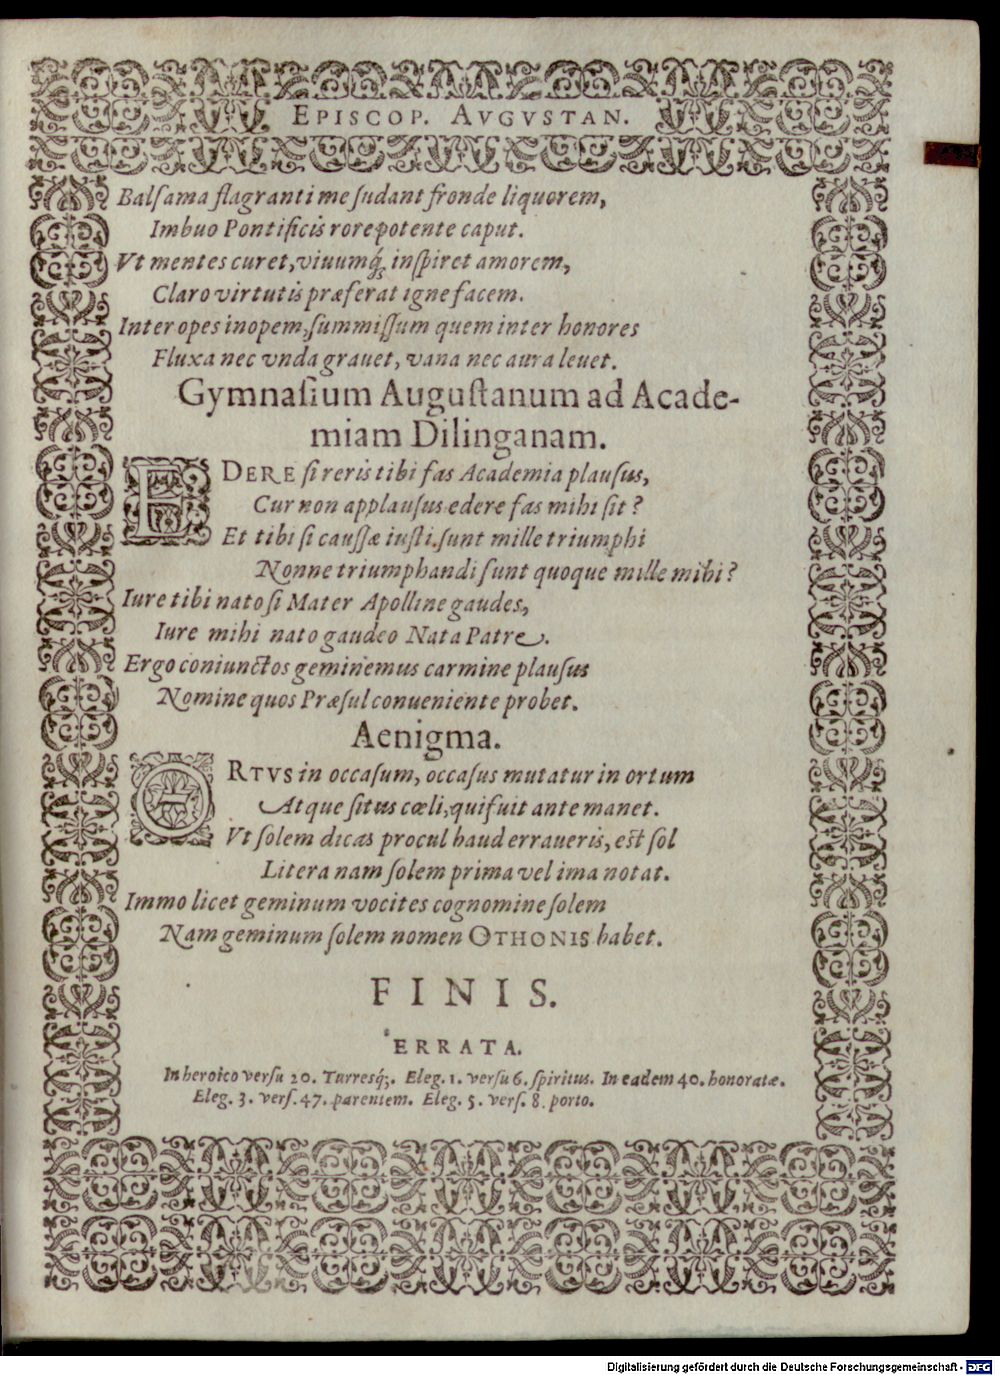 EPISCOP. AVGVSTAN.
Balſama flagranti me ſudant fronde liquorem,
Imbuo Pontificis rore potente caput.
Vt mentes curet, viuumq́; inſpiret amorem,
Claro virtutis præferat igne facem.
Inter opes inopem, ſummiſſum quem inter honores
Fluxa nec vnda grauet, vana nec aura leuet.
Gymnaſium Auguſtanum ad Acade-
miam Dilinganam.
EDERE ſi reris tibi fas Academia plauſus,
Cur non applauſus edere fas mihi ſit?
Et tibi ſi cauſſæ iuſti. ſunt mille triumphi
Nonne triumphandi ſunt quoque mille mihi?
Iure tibi nato ſi Mater Apolline gaudes,
Iure mihi nato gaudeo Nata Patre.
Ergo coniunctos geminemus carmine plauſus
Nomine quos Præſul conueniente probet.
Aenigma.
ORTVS in occaſum, occaſus mutatur in ortum
Atque ſitus cœli, qui fuit ante manet.
Vt ſolem dicas procul haud erraueris, eſt ſol
Litera nam ſolem prima vel ima notat.
Immo licet geminum vocites cognomine ſolem
Nam geminum ſolem nomen OTHONIS habet.
FINIS.
ERRATA.
In heroico verſu 20. Turresq́;. Eleg. 1. verſu 6. ſpiritus. In eadem 40. honoratæ.
Eleg. 3. verſ. 47. parentem. Eleg. 5. verſ. 8. porto.
Digitalisierung gefördert durch die Deutsche Forschungsgemeinschaft - DFG